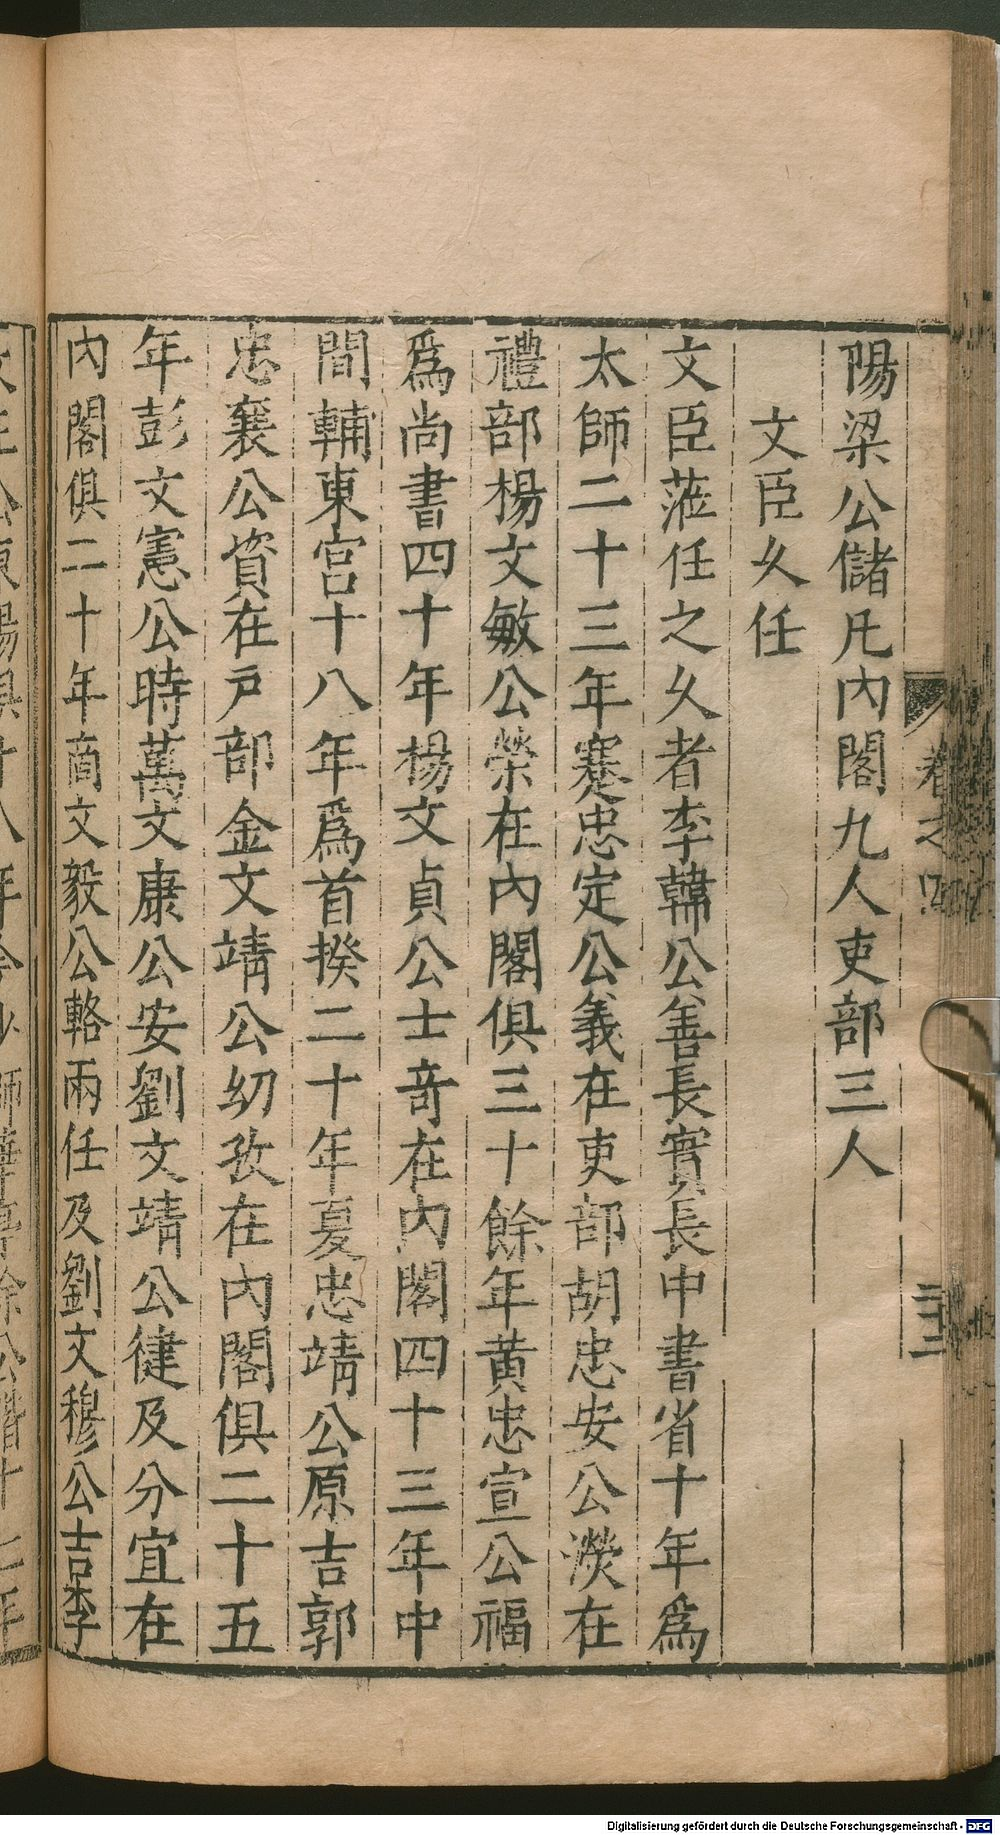 陽梁公儲凡內閣九人吏部三人
文臣久任
文臣蒞任之久者李韓公善長實長中書省十年爲
太師二十三年蹇忠定公義在吏部胡忠安公濙在
禮部楊文敏公榮在內閣俱三十餘年黄忠宣公福
爲尚書四十年楊文貞公士奇在內閣四十三年中
間輔東宮十八年爲首揆二十年夏忠靖公原吉郭
忠襄公資在戸部金文靖公幼孜在內閣俱二十五
年彭文憲公時萬文康公安劉文靖公健及分宜在
內閣俱二十年商文毅公輅兩任及劉文穆公吉李
卷之
二十二
Digitalisierung gefördert durch die Deutsche Forschungsgemeinschaft - DFG